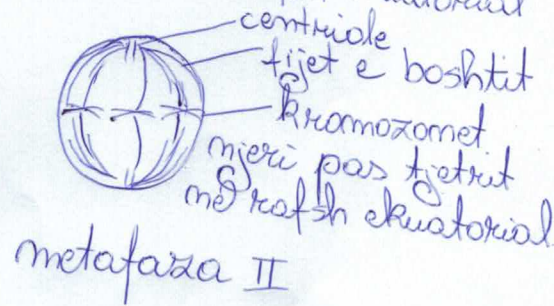 ekuatorial
centriole
fijet e boshtit
kromozomet
njeri pas tjetrit
në rafsh ekuatorial
metafaza II